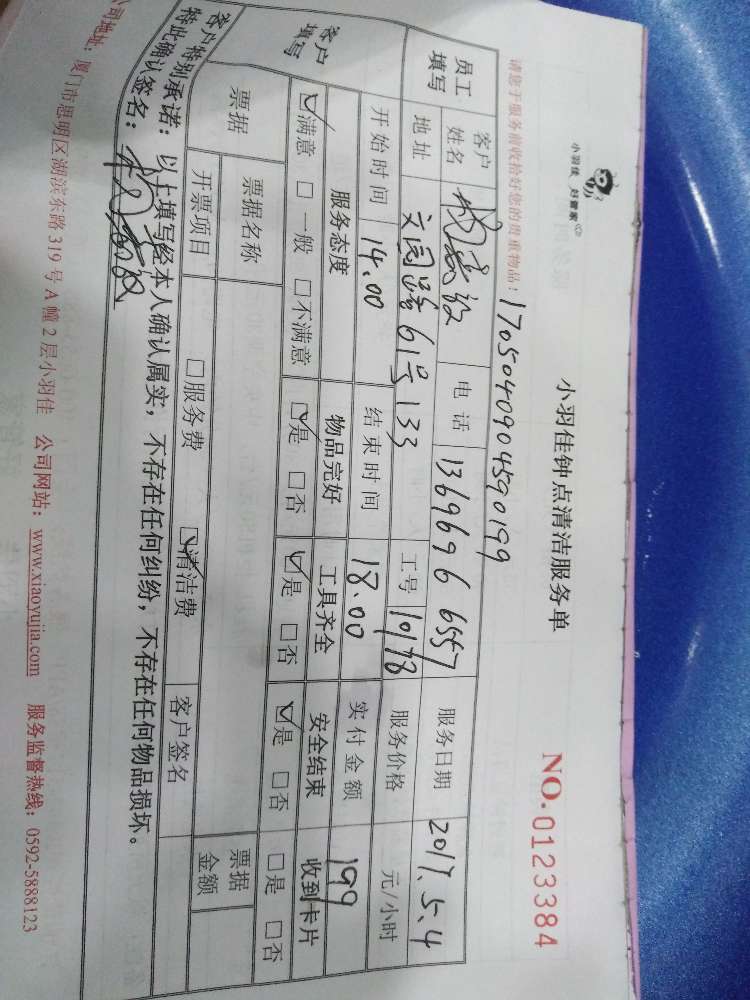 小羽佳 好管家
小羽佳钟点清洁服务单
NO.0123384
请您于服务前收拾好您的贵重物品！
1705040904590199
员工填写
客户姓名 电话 13696966557 服务日期 2017.5.4
地址 文园路61号133 工号 10178 服务价格 元/小时
开始时间 14.00 结束时间 18.00 实付金额 199
客户填写
服务态度 物品完好 工具齐全 安全结束 收到卡片
☑满意 □一般 □不满意 ☑是 □否 ☑是 □否 ☑是 □否 □是 □否
票据 票据名称 票据金额
开票项目 □服务费 ☑清洁费 客户签名
客户特别承诺：以上填写经本人确认属实，不存在任何纠纷，不存在任何物品损坏。
特此确认签名：
公司地址：厦门市思明区湖滨东路319号A幢2层小羽佳 公司网站：www.xiaoyujia.com 服务监督热线：0592-5888123